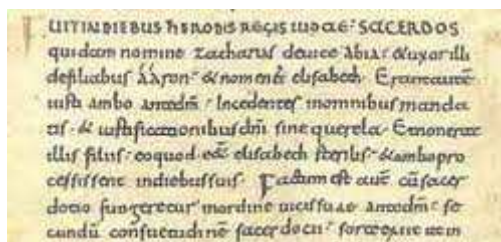 FUIT IN DIEBUS HERODIS REGIS IUDAE· SACERDOS
quidam nomine zacharias deuice abia· & uxor illi
defiliabus ááron· & nomen ei elisabeth· Erant autē
iusti ambo ante dm̄· Incedentes inomnibus manda
tis· & iustificationibus dn̄i sine querela· & non erat
illis filius· eo quod eēt elisabeth sterilis· & ambo pro
cessissent in diebus suis· Factum est autē cū sacer
dotio fungeretur in ordine uicis suae ante dm̄· se
cundū consuetudinē sacerdotii· sorte exiit ut in